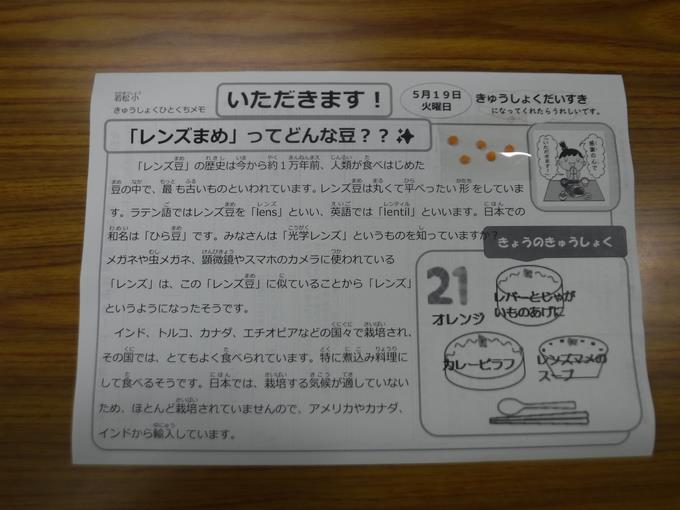 若松小
きゅうしょくひとくちメモ
いただきます！
5月19日
火曜日
きゅうしょくだいすき
になってくれたらうれしいです。
「レンズまめ」ってどんな豆？？
感謝の心で
いただきます！
「レンズ豆」の歴史は今から約1万年前、人類が食べはじめた
豆の中で、最も古いものといわれています。レンズ豆は丸くて平べったい形をしていま
す。ラテン語ではレンズ豆を「lens」といい、英語では「lentil」といいます。日本での
和名は「ひら豆」です。みなさんは「光学レンズ」というものを知っていますか？
メガネや虫メガネ、顕微鏡やスマホのカメラに使われている
「レンズ」は、この「レンズ豆」に似ていることから「レンズ」
というようになったそうです。
インド、トルコ、カナダ、エチオピアなどの国々で栽培され、
その国では、とてもよく食べられています。特に煮込み料理に
して食べるそうです。日本では、栽培する気候が適していない
ため、ほとんど栽培されていませんので、アメリカやカナダ、
インドから輸入しています。
きょうのきゅうしょく
21
オレンジ
レバーとじゃが
いものあげに
カレーピラフ
レンズマメの
スープ